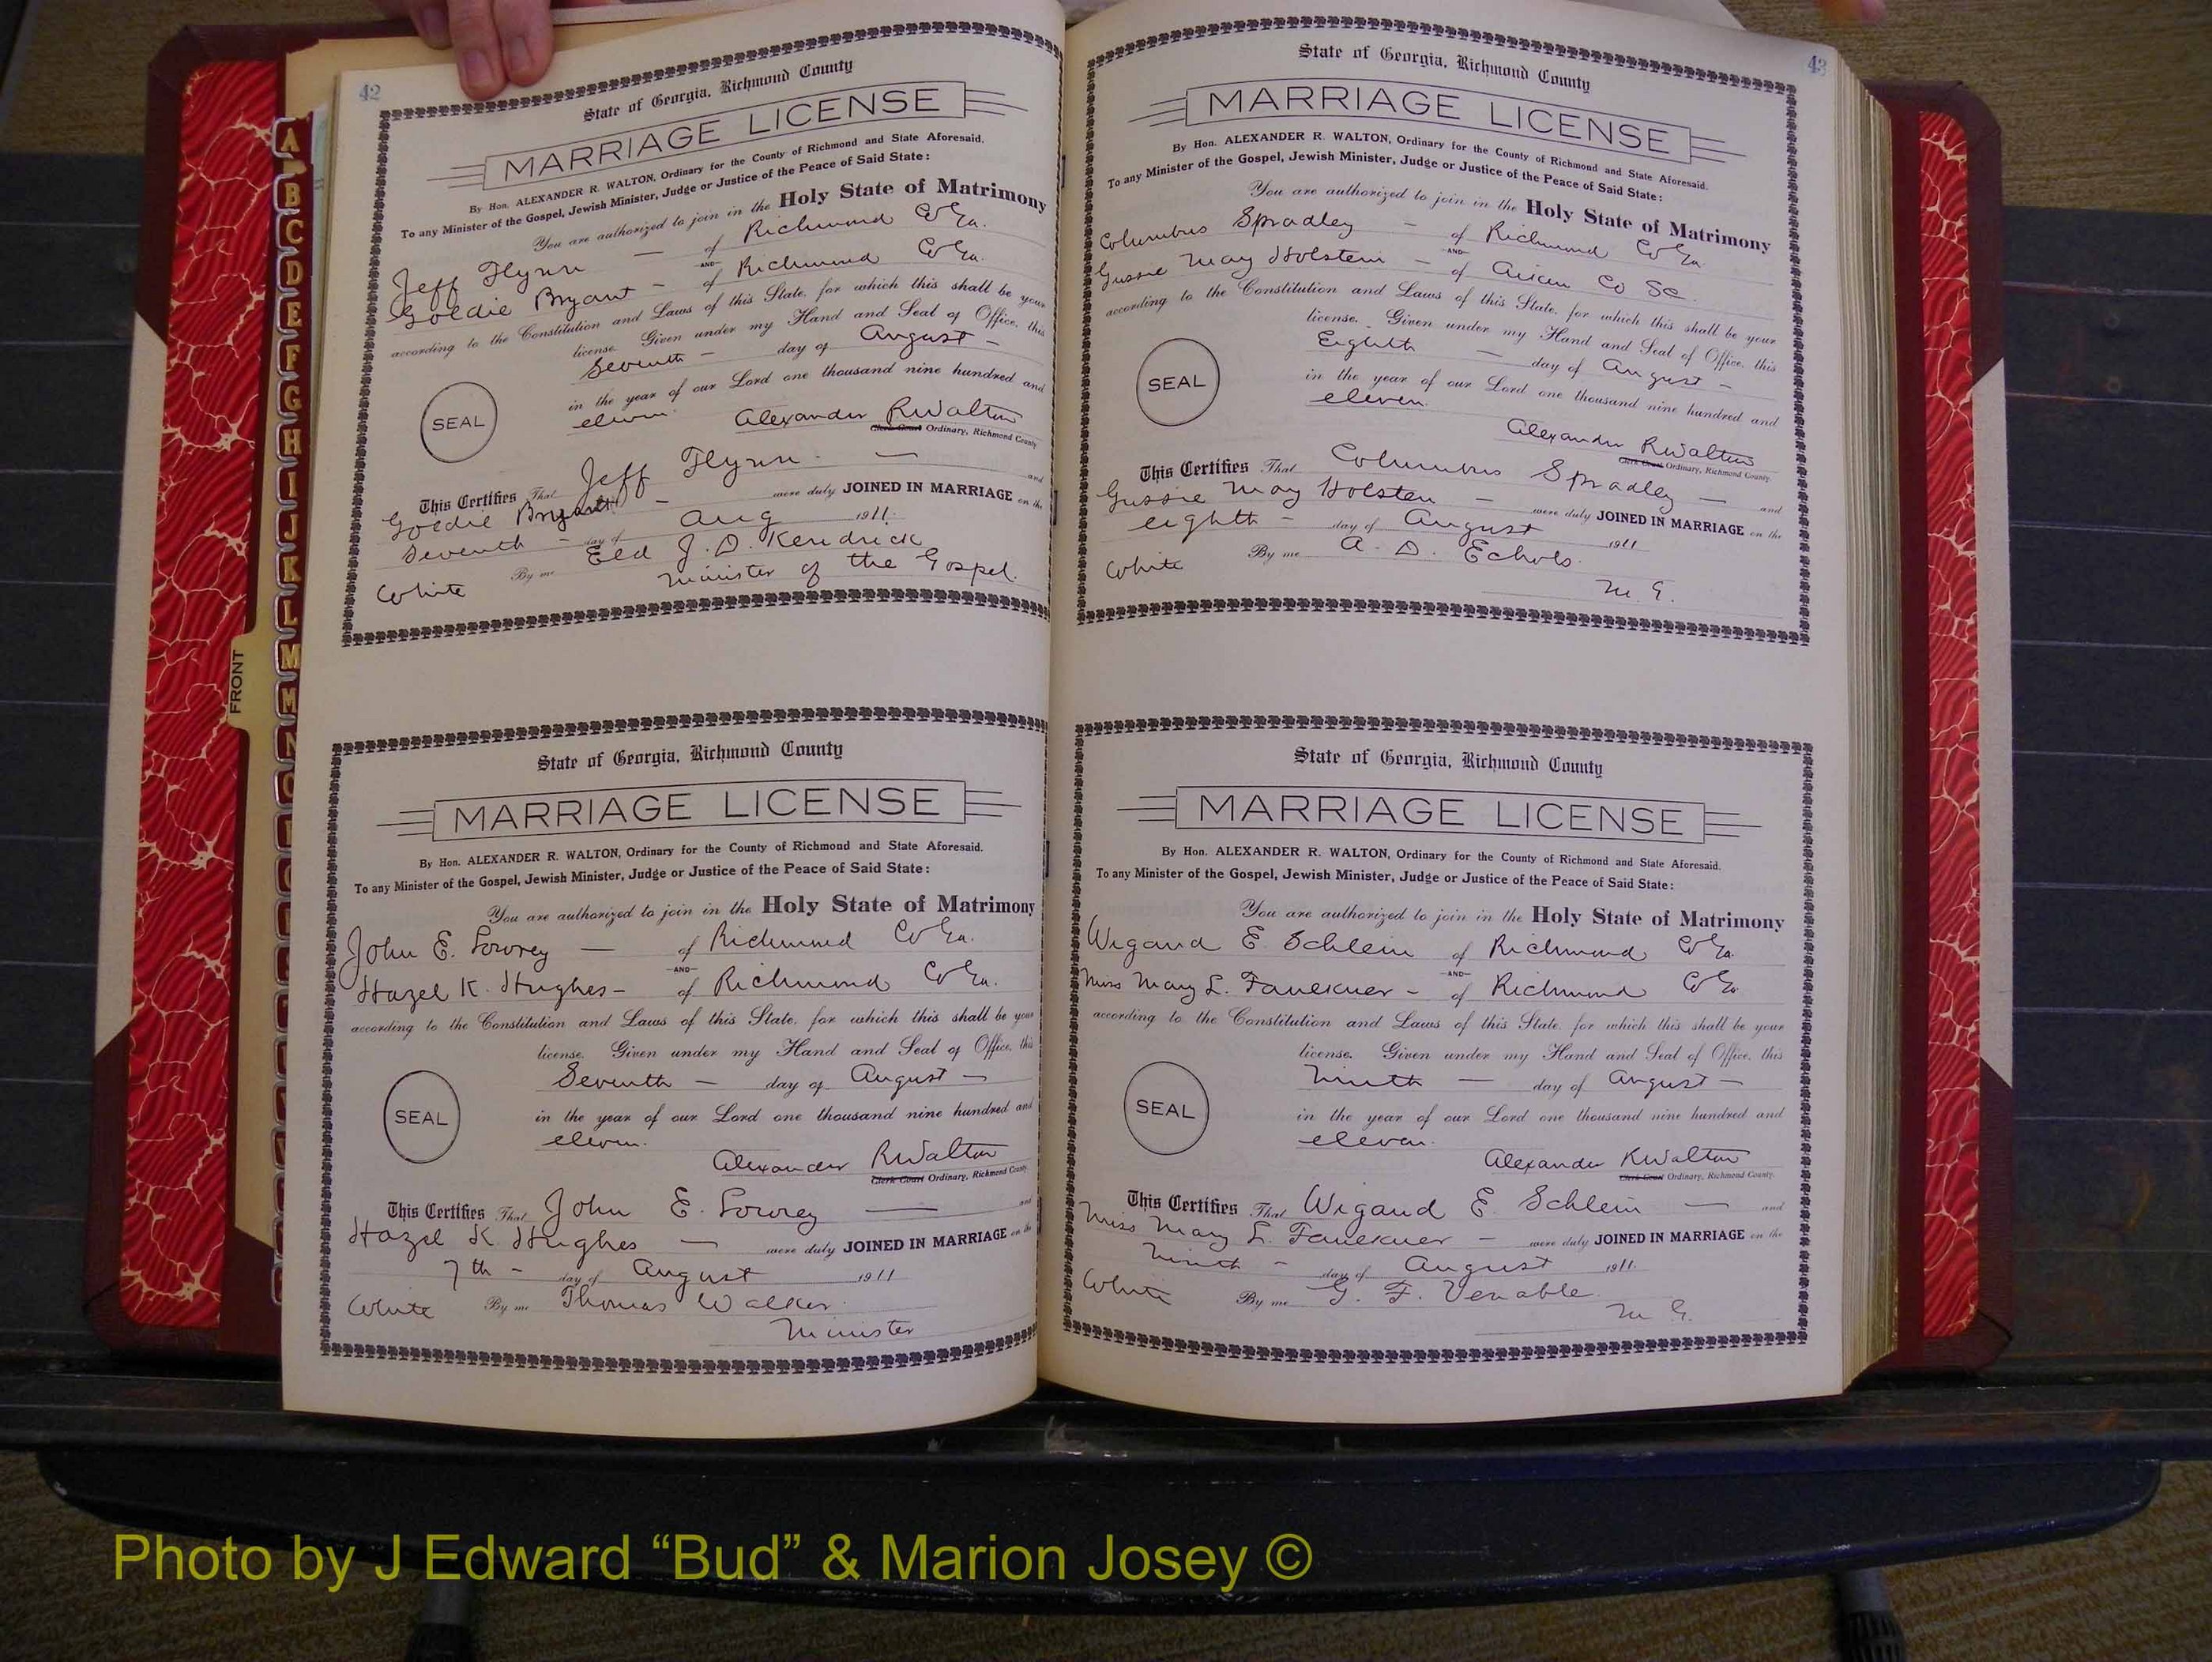 42
State of Georgia, Richmond County
MARRIAGE LICENSE
By Hon. ALEXANDER R. WALTON, Ordinary for the County of Richmond and State Aforesaid.
To any Minister of the Gospel, Jewish Minister, Judge or Justice of the Peace of Said State:
You are authorized to join in the Holy State of Matrimony
Jeff Flynn — of Richmond Co Ga.
AND
Goldie Bryant — of Richmond Co Ga.
according to the Constitution and Laws of this State, for which this shall be your
license. Given under my Hand and Seal of Office, this
Seventh — day of August —
in the year of our Lord one thousand nine hundred and
eleven.
SEAL
Alexander R Walton
Clerk Court Ordinary, Richmond County
This Certifies That Jeff Flynn — and
Goldie Bryant — were duly JOINED IN MARRIAGE on the
Seventh — day of Aug 1911.
White By me Eld J. D. Kendrick
Minister of the Gospel.
State of Georgia, Richmond County
MARRIAGE LICENSE
By Hon. ALEXANDER R. WALTON, Ordinary for the County of Richmond and State Aforesaid.
To any Minister of the Gospel, Jewish Minister, Judge or Justice of the Peace of Said State:
You are authorized to join in the Holy State of Matrimony
John E. Lowrey — of Richmond Co Ga.
AND
Hazel K. Hughes — of Richmond Co Ga.
according to the Constitution and Laws of this State, for which this shall be your
license. Given under my Hand and Seal of Office, this
Seventh — day of August —
in the year of our Lord one thousand nine hundred and
eleven.
SEAL
Alexander R Walton
Clerk Court Ordinary, Richmond County
This Certifies That John E. Lowrey — and
Hazel K Hughes — were duly JOINED IN MARRIAGE on the
7th — day of August 1911
White By me Thomas Walker.
Minister
43
State of Georgia, Richmond County
MARRIAGE LICENSE
By Hon. ALEXANDER R. WALTON, Ordinary for the County of Richmond and State Aforesaid.
To any Minister of the Gospel, Jewish Minister, Judge or Justice of the Peace of Said State:
You are authorized to join in the Holy State of Matrimony
Columbus Spradley — of Richmond Co Ga.
AND
Gussie May Holstein — of Aiken Co SC.
according to the Constitution and Laws of this State, for which this shall be your
license. Given under my Hand and Seal of Office, this
Eighth — day of August —
in the year of our Lord one thousand nine hundred and
eleven.
SEAL
Alexander R Walton
Clerk Court Ordinary, Richmond County
This Certifies That Columbus Spradley — and
Gussie May Holsten — were duly JOINED IN MARRIAGE on the
eighth — day of August 1911
White By me A. D. Echols.
M. G.
State of Georgia, Richmond County
MARRIAGE LICENSE
By Hon. ALEXANDER R. WALTON, Ordinary for the County of Richmond and State Aforesaid.
To any Minister of the Gospel, Jewish Minister, Judge or Justice of the Peace of Said State:
You are authorized to join in the Holy State of Matrimony
Wigand E. Schlein of Richmond Co Ga.
AND
Miss Mary L. Faulkner — of Richmond Co Ga.
according to the Constitution and Laws of this State, for which this shall be your
license. Given under my Hand and Seal of Office, this
Ninth — day of August —
in the year of our Lord one thousand nine hundred and
eleven.
SEAL
Alexander R Walton
Clerk Court Ordinary, Richmond County.
This Certifies That Wigand E. Schlein — and
Miss Mary L. Faulkner — were duly JOINED IN MARRIAGE on the
Ninth — day of August 1911.
White By me G. F. Venable.
M G.
FRONT
A
B
C
D
E
F
G
H
I
J
K
L
M
M
N
Photo by J Edward “Bud” & Marion Josey ©